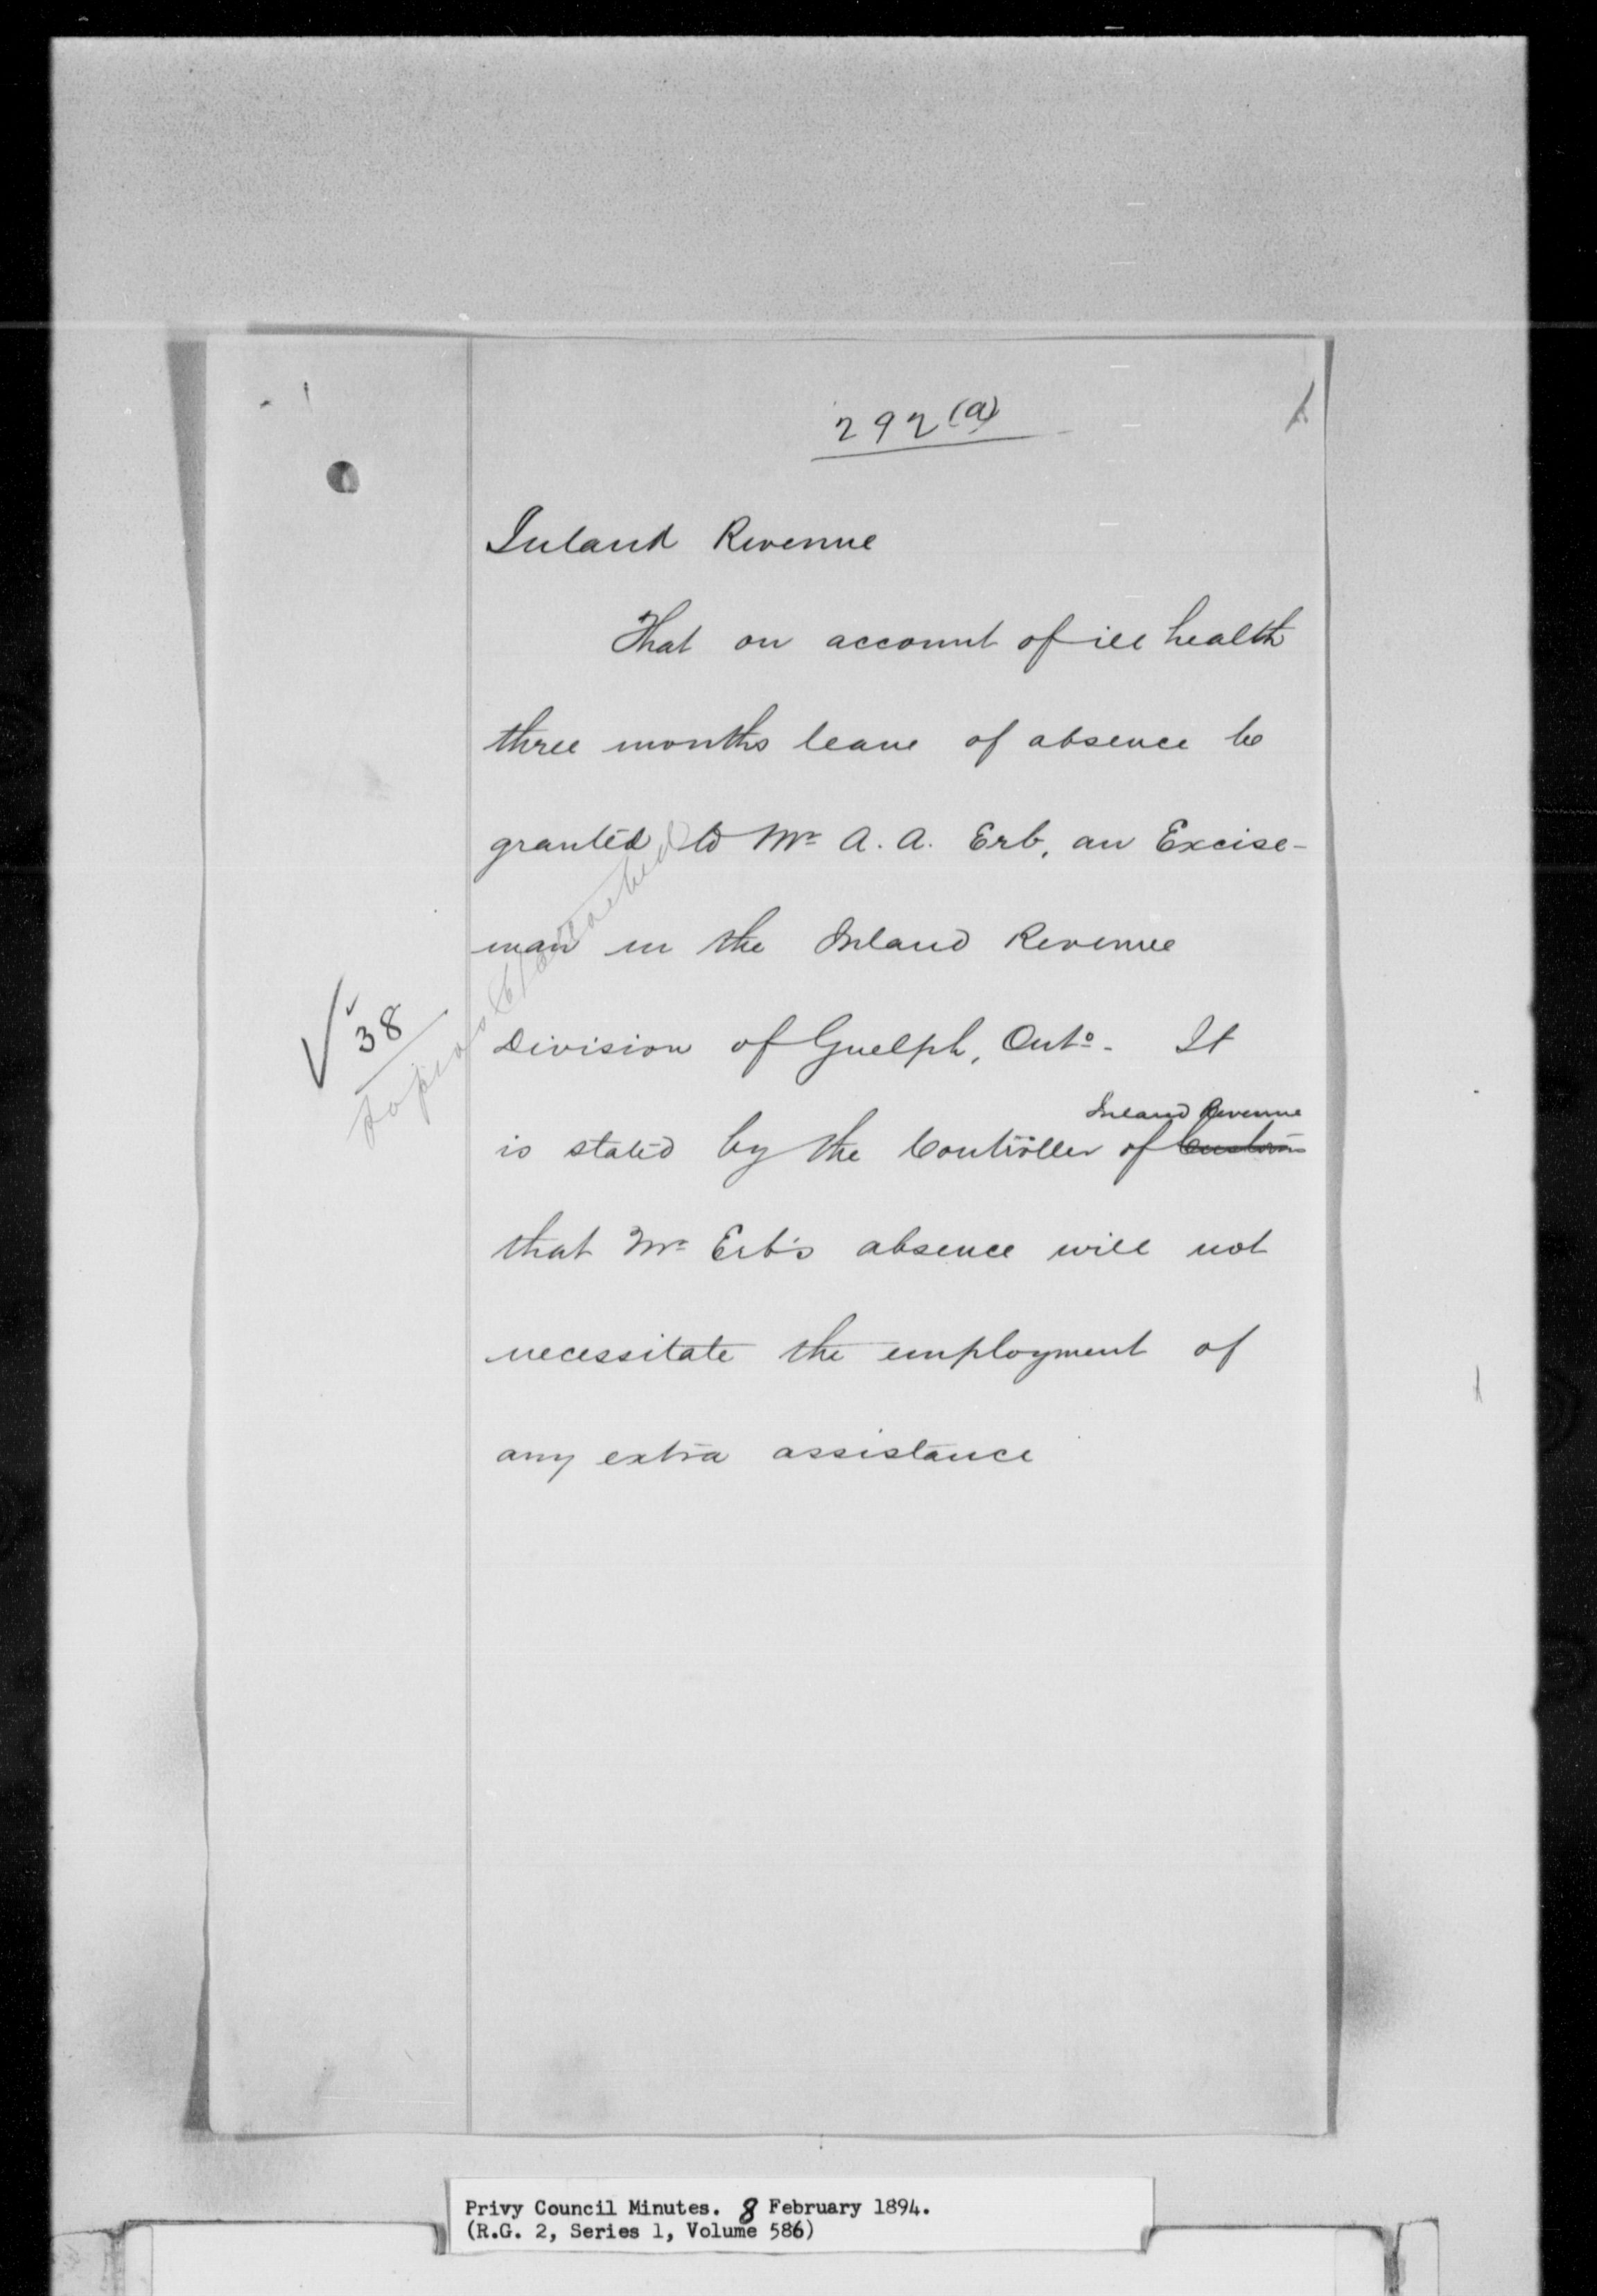 292(a)
Inland Revenue
That on account of ill health
three months leave of absence be
granted to Mr A. A. Erb, an Excise-
man in the Inland Revenue
38
Division of Guelph, Onto. It
Inland Revenue
is stated by the Controller of Customs
that Mr Erb's absence will not
necessitate the employment of
any extra assistance
Privy Council Minutes. 8 February 1894.
(R.G. 2, Series 1, Volume 586)